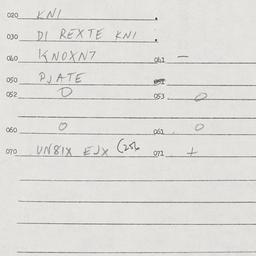 020 KNI
030 DI REXTE KNI
040 KNOXN7 041 —
050 PJATE 051
052 O 053 O
060 O 061 O
070 UN81X EJX (256 071 +